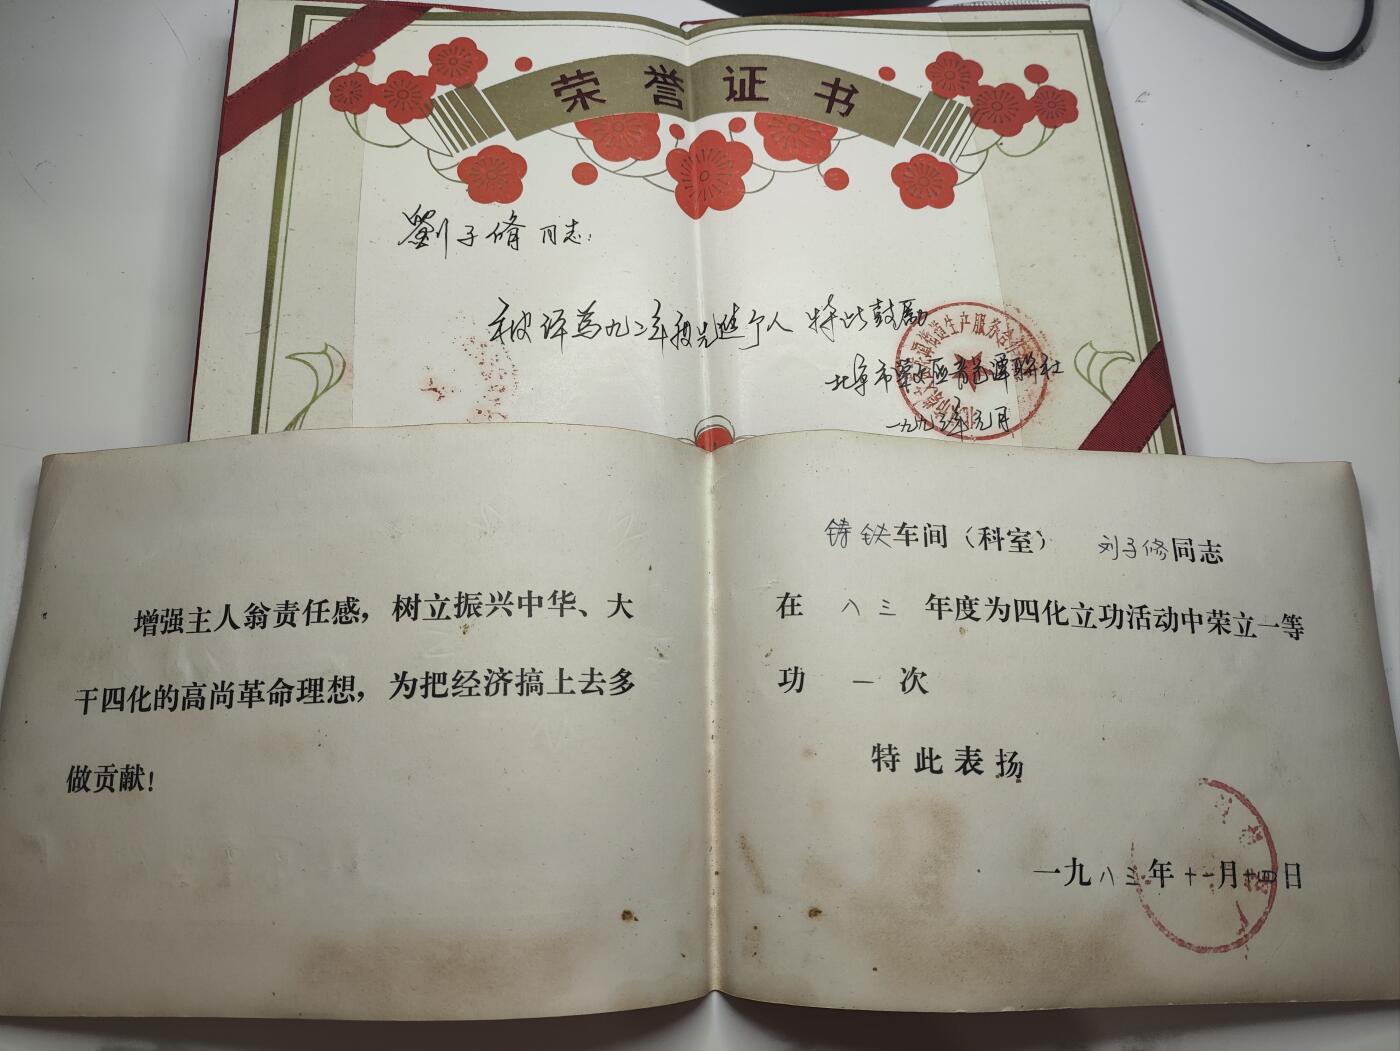 荣誉证书
劉子脩同志:
被评为九二年度先进个人 特此鼓励
北京市崇文区龙潭联社
一九九三年元月
增强主人翁责任感，树立振兴中华、大
干四化的高尚革命理想，为把经济搞上去多
做贡献！
铸铁车间（科室） 刘子修同志
在 八三 年度为四化立功活动中荣立一等
功 一 次
特此表扬
一九八三年十一月 日